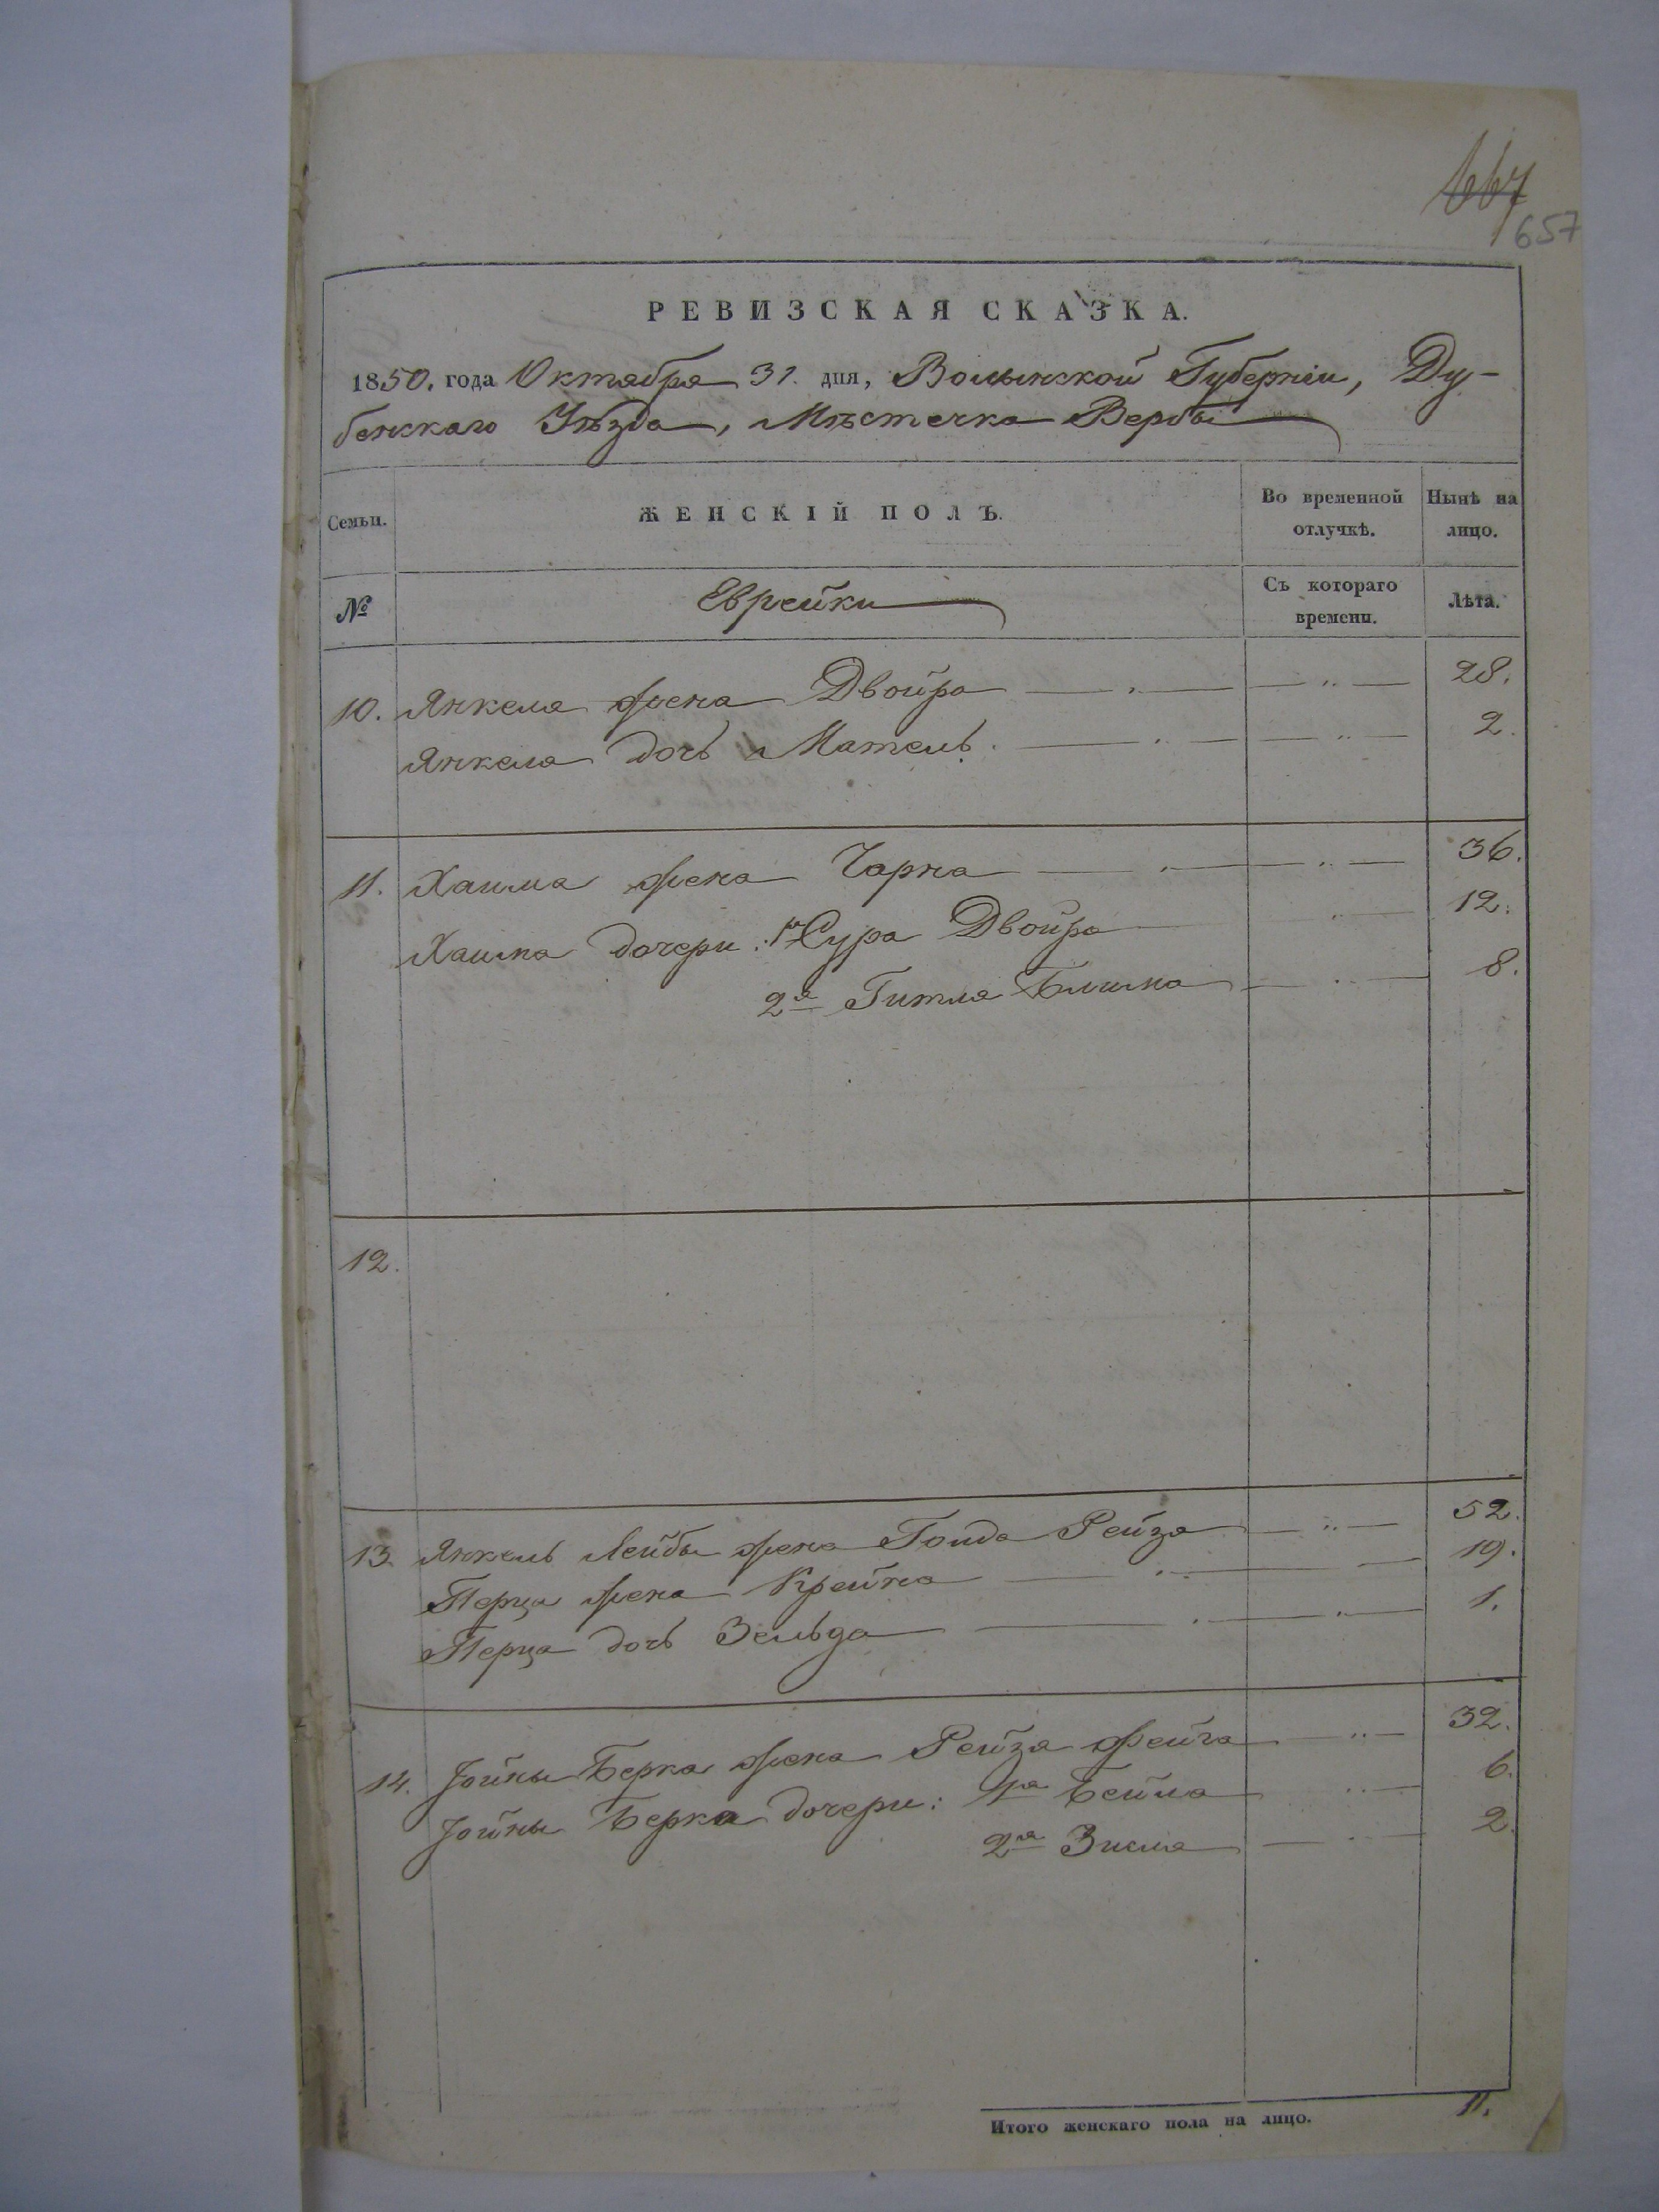 667
657
РЕВИЗСКАЯ СКАЗКА.
1850. года Октября 31. дня, Волынской Губерніи, Ду-
бенскаго Уѣзда, Мѣстечка Вербы
Семьи. ЖЕНСКІЙ ПОЛЪ. Во временной отлучкѣ. Нынѣ на лицо.
№ Еврейки Съ котораго времени. Лѣта.
10. Янкеля жена Двойра — " — — " — 28.
Янкеля дочь Матель. — " — — " — 2.
11. Хаима жена Чарна — " — — " — 36.
Хаима дочери: 1я Сура Двойра — " — 12.
2я Гитля Блима — " — 8.
12.
13. Янкель Лейбы жена Голда Рейзя — " — 52.
Перца жена Крейна — " — 19.
Перца дочь Зельда — " — — " — 1.
14. Іойны Берка жена Рейзя Фейга — " — 32.
Іойны Берка дочери: 1я Бейла — " — 6.
2я Зисля — " — 2.
Итого женскаго пола на лицо. 11.